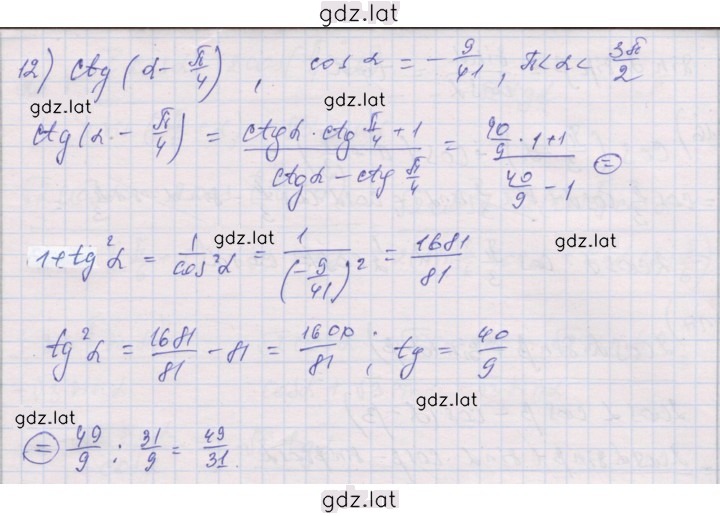 gdz.lat
12) ctg (α - π/4) , cos α = - 9/41 , π < α < 3π/2
gdz.lat gdz.lat
ctg (α - π/4) = (ctg α · ctg π/4 + 1)/(ctg α - ctg π/4) = (40/9 · 1 + 1)/(40/9 - 1) =
gdz.lat gdz.lat
1 + tg²α = 1/cos²α = 1/(-9/41)² = 1681/81
tg²α = 1681/81 - 81 = 1600/81 ; tg = 40/9
gdz.lat gdz.lat
= 49/9 : 31/9 = 49/31.
gdz.lat